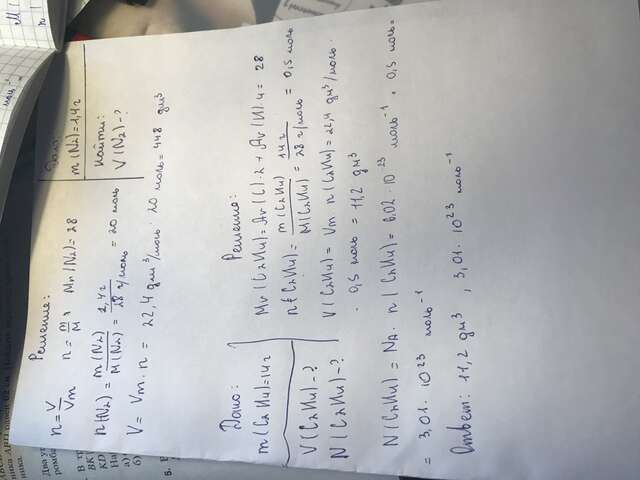 Решение:
n = V/Vm n = m/M, Mr(N2) = 28
Дано:
m(N2) = 1,4г
Найти:
V(N2) - ?
n(N2) = m(N2)/M(N2) = 1,4г/28 г/моль = 20 моль
V = Vm · n = 22,4 дм³/моль · 20 моль = 448 дм³
Дано:
m(C2H4) = 14г
V(C2H4) - ?
N(C2H4) - ?
Решение:
Mr(C2H4) = Ar(C)·2 + Ar(H)·4 = 28
n(C2H4) = m(C2H4)/M(C2H4) = 14г/28 г/моль = 0,5 моль
V(C2H4) = Vm n(C2H4) = 22,4 дм³/моль ·
· 0,5 моль = 11,2 дм³
N(C2H4) = NA · n(C2H4) = 6,02 · 10²³ моль⁻¹ · 0,5 моль =
= 3,01 · 10²³ моль⁻¹
Ответ: 11,2 дм³, 3,01 · 10²³ моль⁻¹